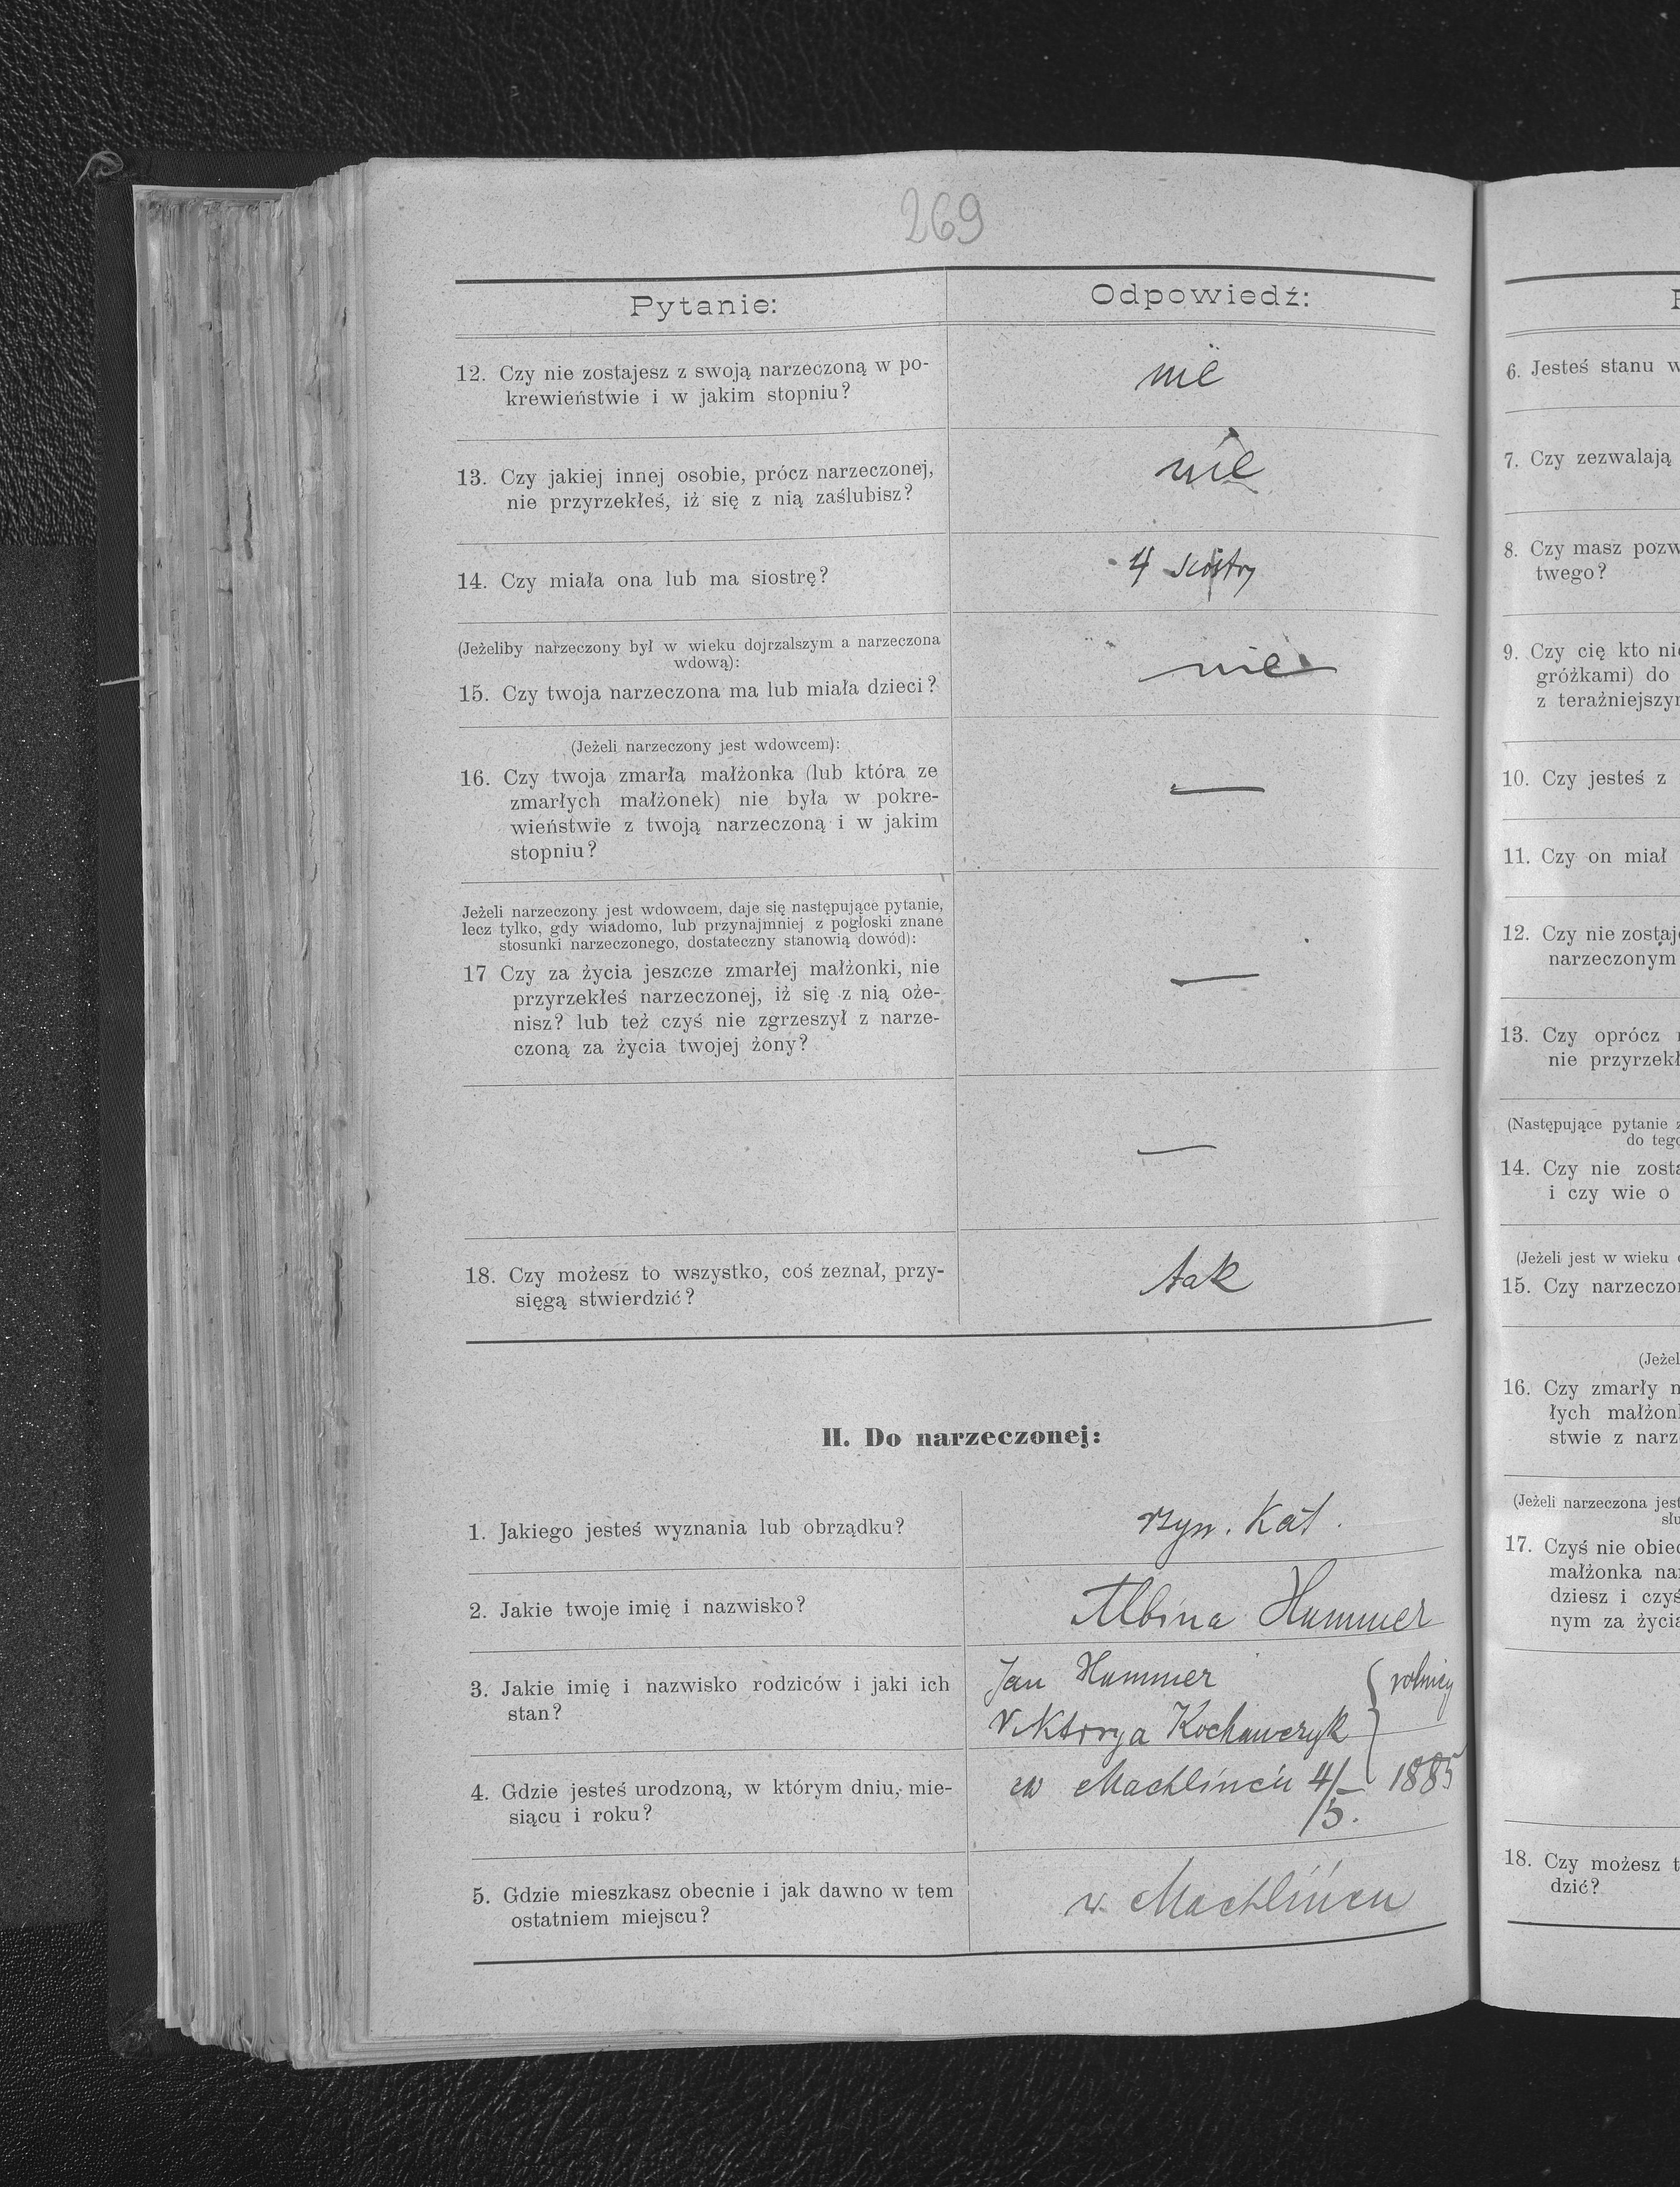 269
Pytanie:
Odpowiedź:
12. Czy nie zostajesz z swoją narzeczoną w po-
krewieństwie i w jakim stopniu?
nie
13. Czy jakiej innej osobie, prócz narzeczonej,
nie przyrzekłeś, iż się z nią zaślubisz?
nie
14. Czy miała ona lub ma siostrę?
4 siostry
(Jeżeliby narzeczony był w wieku dojrzalszym a narzeczona
wdową):
15. Czy twoja narzeczona ma lub miała dzieci?
nie
(Jeżeli narzeczony jest wdowcem):
16. Czy twoja zmarła małżonka (lub która ze
zmarłych małżonek) nie była w pokre-
wieństwie z twoją narzeczoną i w jakim
stopniu?
—
Jeżeli narzeczony jest wdowcem, daje się następujące pytanie,
lecz tylko, gdy wiadomo, lub przynajmniej z pogłoski znane
stosunki narzeczonego, dostateczny stanowią dowód):
17 Czy za życia jeszcze zmarłej małżonki, nie
przyrzekłeś narzeczonej, iż się z nią oże-
nisz? lub też czyś nie zgrzeszył z narze-
czoną za życia twojej żony?
—
—
18. Czy możesz to wszystko, coś zeznał, przy-
sięgą stwierdzić?
tak
II. Do narzeczonej:
1. Jakiego jesteś wyznania lub obrządku?
rzym. kat.
2. Jakie twoje imię i nazwisko?
Albina Hammer
3. Jakie imię i nazwisko rodziców i jaki ich
stan?
Jan Hammer
Viktorya Kochawczyk
rolnicy
4. Gdzie jesteś urodzoną, w którym dniu, mie-
siącu i roku?
w Machlińcu 4/5. 1885
5. Gdzie mieszkasz obecnie i jak dawno w tem
ostatniem miejscu?
w Machlińcu
6. Jesteś stanu w
7. Czy zezwalają
8. Czy masz pozw
twego?
9. Czy cię kto nie
gróżkami) do
z teraźniejszym
10. Czy jesteś z
11. Czy on miał
12. Czy nie zostaje
narzeczonym
13. Czy oprócz
nie przyrzekł
(Następujące pytanie z
do tego
14. Czy nie zosta
i czy wie o
(Jeżeli jest w wieku
15. Czy narzeczon
(Jeżel
16. Czy zmarły m
łych małżonk
stwie z narz
(Jeżeli narzeczona jest
słu
17. Czyś nie obiec
małżonka na
dziesz i czyś
nym za życia
18. Czy możesz t
dzić?